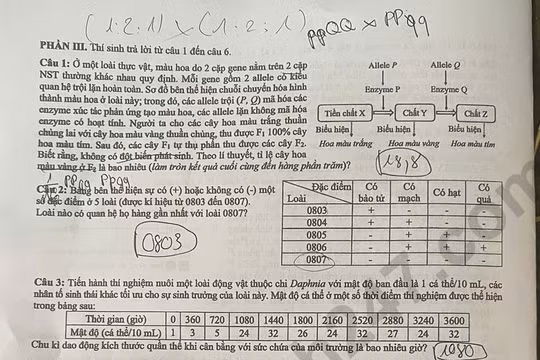 (1:2:1) × (1:2:1) ppQQ × PPqq
PHẦN III. Thí sinh trả lời từ câu 1 đến câu 6.
Câu 1: Ở một loài thực vật, màu hoa do 2 cặp gene nằm trên 2 cặp
NST thường khác nhau quy định. Mỗi gene gồm 2 allele có kiểu
quan hệ trội lặn hoàn toàn. Sơ đồ bên thể hiện chuỗi chuyển hóa hình
thành màu hoa ở loài này; trong đó, các allele trội (P, Q) mã hóa các
enzyme xúc tác phản ứng tạo màu hoa, các allele lặn không mã hóa
enzyme có hoạt tính. Người ta cho các cây hoa màu trắng thuần
chủng lai với cây hoa màu vàng thuần chủng, thu được F1 100% cây
hoa màu tím. Sau đó, các cây F1 tự thụ phấn thu được các cây F2.
Biết rằng, không có đột biến phát sinh. Theo lí thuyết, tỉ lệ cây hoa
màu vàng ở F2 là bao nhiêu (làm tròn kết quả cuối cùng đến hàng phần trăm)?
Allele P Allele Q
Enzyme P Enzyme Q
Tiền chất X Chất Y Chất Z
Biểu hiện Biểu hiện Biểu hiện
Hoa màu trắng Hoa màu vàng Hoa màu tím
18,8
Câu 2: Bảng bên thể hiện sự có (+) hoặc không có (-) một
số đặc điểm ở 5 loài (được kí hiệu từ 0803 đến 0807).
Loài nào có quan hệ họ hàng gần nhất với loài 0807?
0803
Đặc điểm Có Có Có hạt Có
Loài bào tử mạch quả
0803 + - - -
0804 + + - -
0805 - + + -
0806 - + + +
0807 - - - -
Câu 3: Tiến hành thí nghiệm nuôi một loài động vật thuộc chi Daphnia với mật độ ban đầu là 1 cá thể/10 mL, các
nhân tố sinh thái khác tối ưu cho sự sinh trưởng của loài này. Mật độ cá thể ở một số thời điểm thí nghiệm được thể hiện
trong bảng sau:
Thời gian (giờ) 0 360 720 1080 1440 1800 2160 2520 2880 3240 3600
Mật độ (cá thể/10 mL) 1 3 5 24 32 26 24 32 27 24 32
Chu kì dao động kích thước quần thể khi cân bằng với sức chứa của môi trường là bao nhiêu giờ? 1080